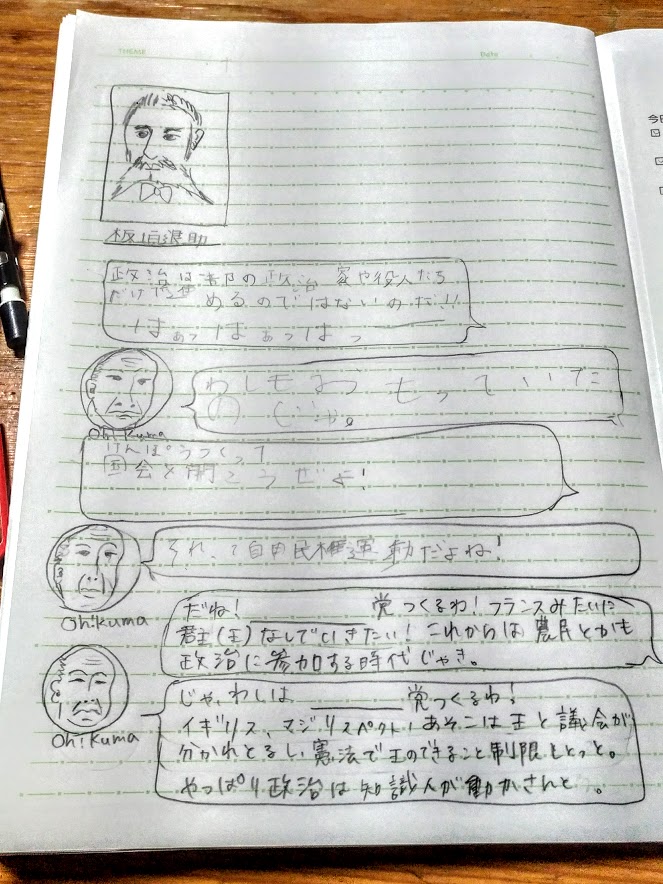 THEME
Date
板垣退助
政治は一部の政治家や役人たち
だけで進めるのではないのだ!!
はぁっはぁっはっ
わしもそう
もっていいた
のじゃ。
Oh!Kuma
けんぽうつくって
国会を開こうぜよ!
それって自由民権運動だよね!
Oh!Kuma
だね! 党つくるわ!フランスみたいに
君主(王)なしでいきたい!これからは農民とかも
政治に参加する時代じゃき。
Oh!Kuma
じゃ、わしは 党つくるわ!
イギリス、マジリスペクト、あそこは王と議会が
分かれとるし、憲法で王のできること制限しとっと。
やっぱり政治は知識人が動かさんと。
今日